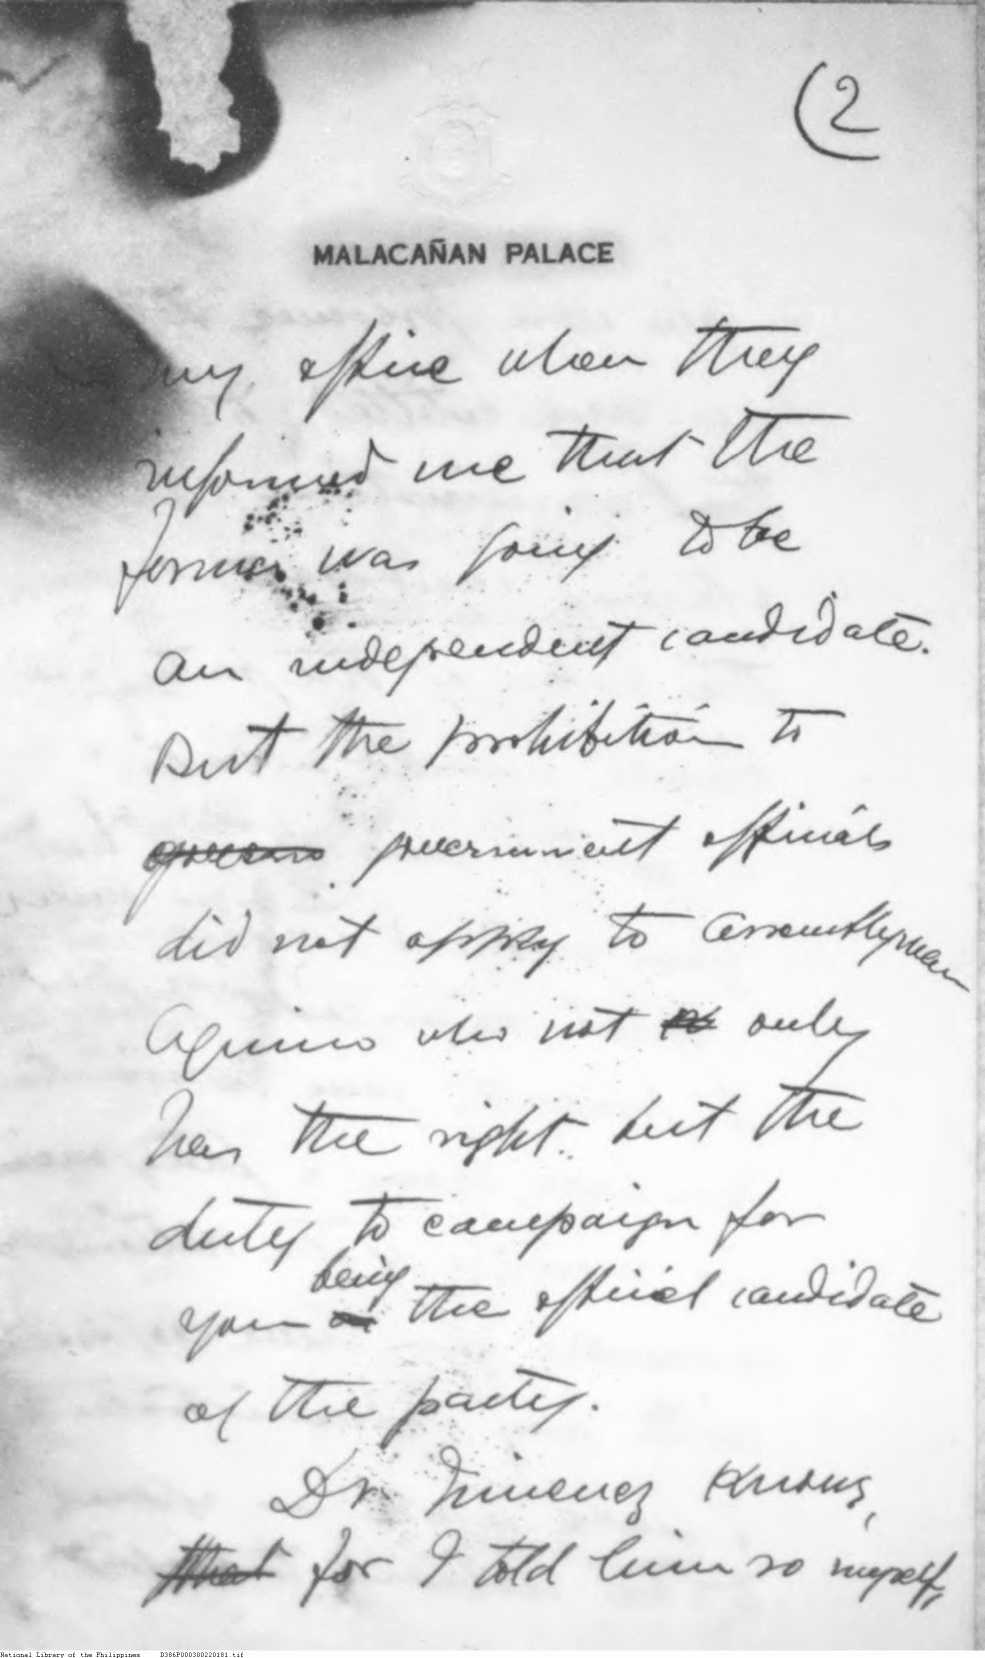 (2
MALACAÑAN PALACE
my office when they
informed me that the
former was going to be
an independent candidate.
But the prohibition to
govern government officials
did not apply to Assemblyman
Aquino who not only
has the right but the
duty to campaign for
being
you as the official candidate
of the party.
Dr. Jimenez knows,
that for I told him so myself,
National Library of the Philippines D386P000300220181.tif